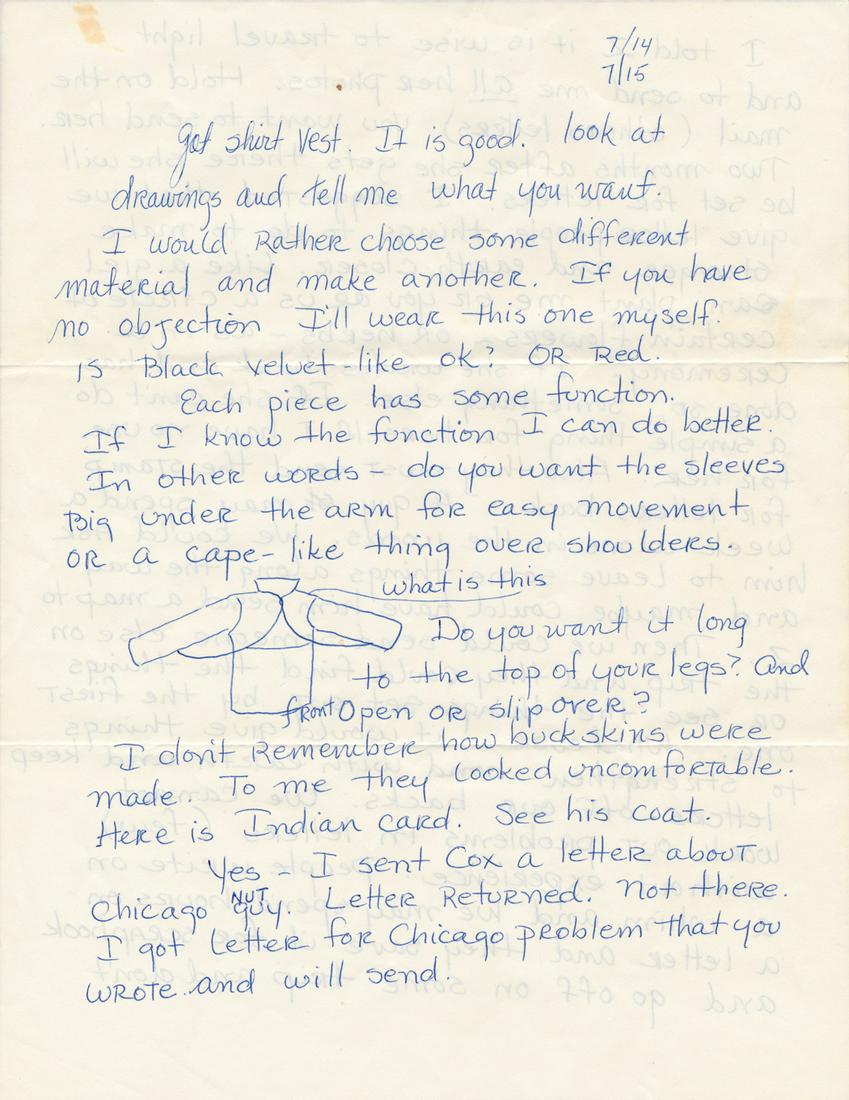 7/14
7/15
Got shirt vest. It is good. look at
drawings and tell me what you want.
I would Rather choose some different
material and make another. If you have
no objection I'll wear this one myself.
is Black velvet-like ok? OR Red.
Each piece has some function.
If I know the function I can do better.
In other words - do you want the sleeves
Big under the arm for easy movement
OR a cape-like thing over shoulders.
what is this
Do you want it long
to the top of your legs? And
front Open or slip over?
I don't Remember how buckskins were
made. To me they looked uncomfortable.
Here is Indian card. See his coat.
Yes - I sent Cox a letter about
Chicago NUT guy. Letter Returned. Not there.
I got Letter for Chicago problem that you
wrote and will send.